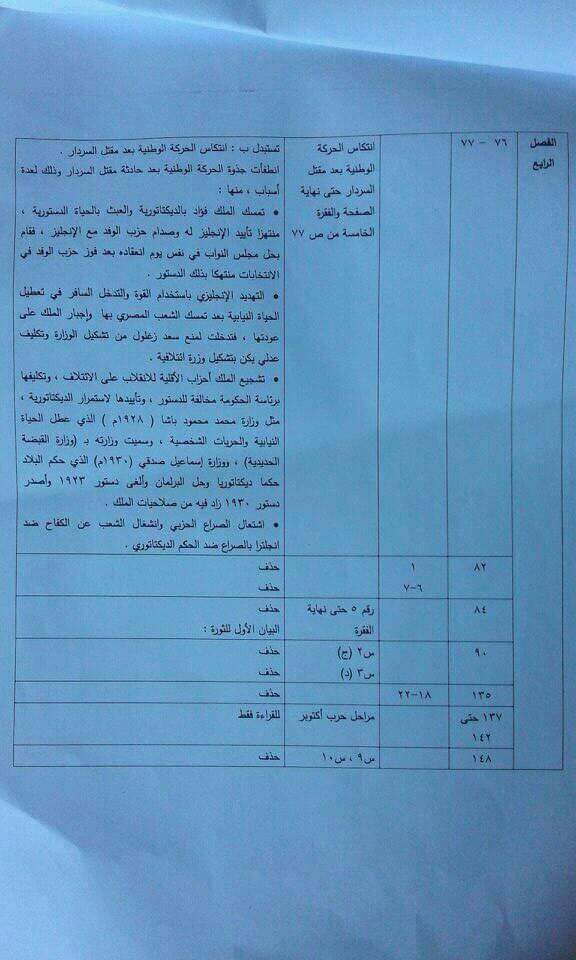 الفصل
الرابع
٧٦ – ٧٧
انتكاس الحركة
الوطنية بعد مقتل
السردار حتى نهاية
الصفحة والفقرة
الخامسة من ص ٧٧
تستبدل ب : انتكاس الحركة الوطنية بعد مقتل السردار .
انطفأت جذوة الحركة الوطنية بعد حادثة مقتل السردار وذلك لعدة
أسباب ، منها :
• تمسك الملك فؤاد بالديكتاتورية والعبث بالحياة الدستورية ،
منتهزا تأييد الإنجليز له وصدام حزب الوفد مع الإنجليز ، فقام
بحل مجلس النواب في نفس يوم انعقاده بعد فوز حزب الوفد في
الانتخابات منتهكا بذلك الدستور .
• التهديد الإنجليزي باستخدام القوة والتدخل السافر في تعطيل
الحياة النيابية بعد تمسك الشعب المصري بها وإجبار الملك على
عودتها ، فتدخلت لمنع سعد زغلول من تشكيل الوزارة وتكليف
عدلي يكن بتشكيل وزرة ائتلافية .
• تشجيع الملك أحزاب الأقلية للانقلاب على الائتلاف ، وتكليفها
برئاسة الحكومة مخالفة للدستور ، وتأييدها لاستمرار الديكتاتورية ،
مثل وزارة محمد محمود باشا ( ١٩٢٨م ) الذي عطل الحياة
النيابية والحريات الشخصية ، وسميت وزارته بـ (وزارة القبضة
الحديدية) ، ووزارة إسماعيل صدقي (١٩٣٠م) الذي حكم البلاد
حكما ديكتاتوريا وحل البرلمان وألغى دستور ١٩٢٣ وأصدر
دستور ١٩٣٠ زاد فيه من صلاحيات الملك .
• اشتعال الصراع الحزبي وانشغال الشعب عن الكفاح ضد
انجلترا بالصراع ضد الحكم الديكتاتوري .
٨٢ ١ حذف
٦–٧ حذف
٨٤ رقم ٥ حتى نهاية حذف
الفقرة البيان الأول للثورة :
٩٠ س٢ (ج) حذف
س٣ (د) حذف
١٣٥ ١٨–٢٢ حذف
١٣٧ حتى مراحل حرب أكتوبر للقراءة فقط
١٤٢
١٤٨ س٩ ، س١٠ حذف